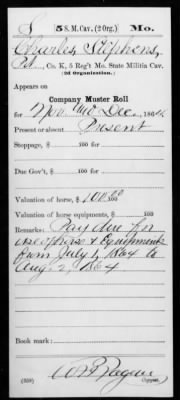 S | 5 S. M. Cav. (2 Org.) | Mo.
Charles Stephens,
Pvt., Co. K, 5 Reg't Mo. State Militia Cav.
(2d Organization.)
Appears on
Company Muster Roll
for Nov. and Dec., 1864.
Present or absent Present
Stoppage, $ 100 for
Due Gov't, $ 100 for
Valuation of horse, $ 100.00
Valuation of horse equipments, $ 100
Remarks: Pay due for
use of horse & Equipments
from July 1, 1864 to
Aug. 2, 1864
Book mark:
(359)
Copyist.